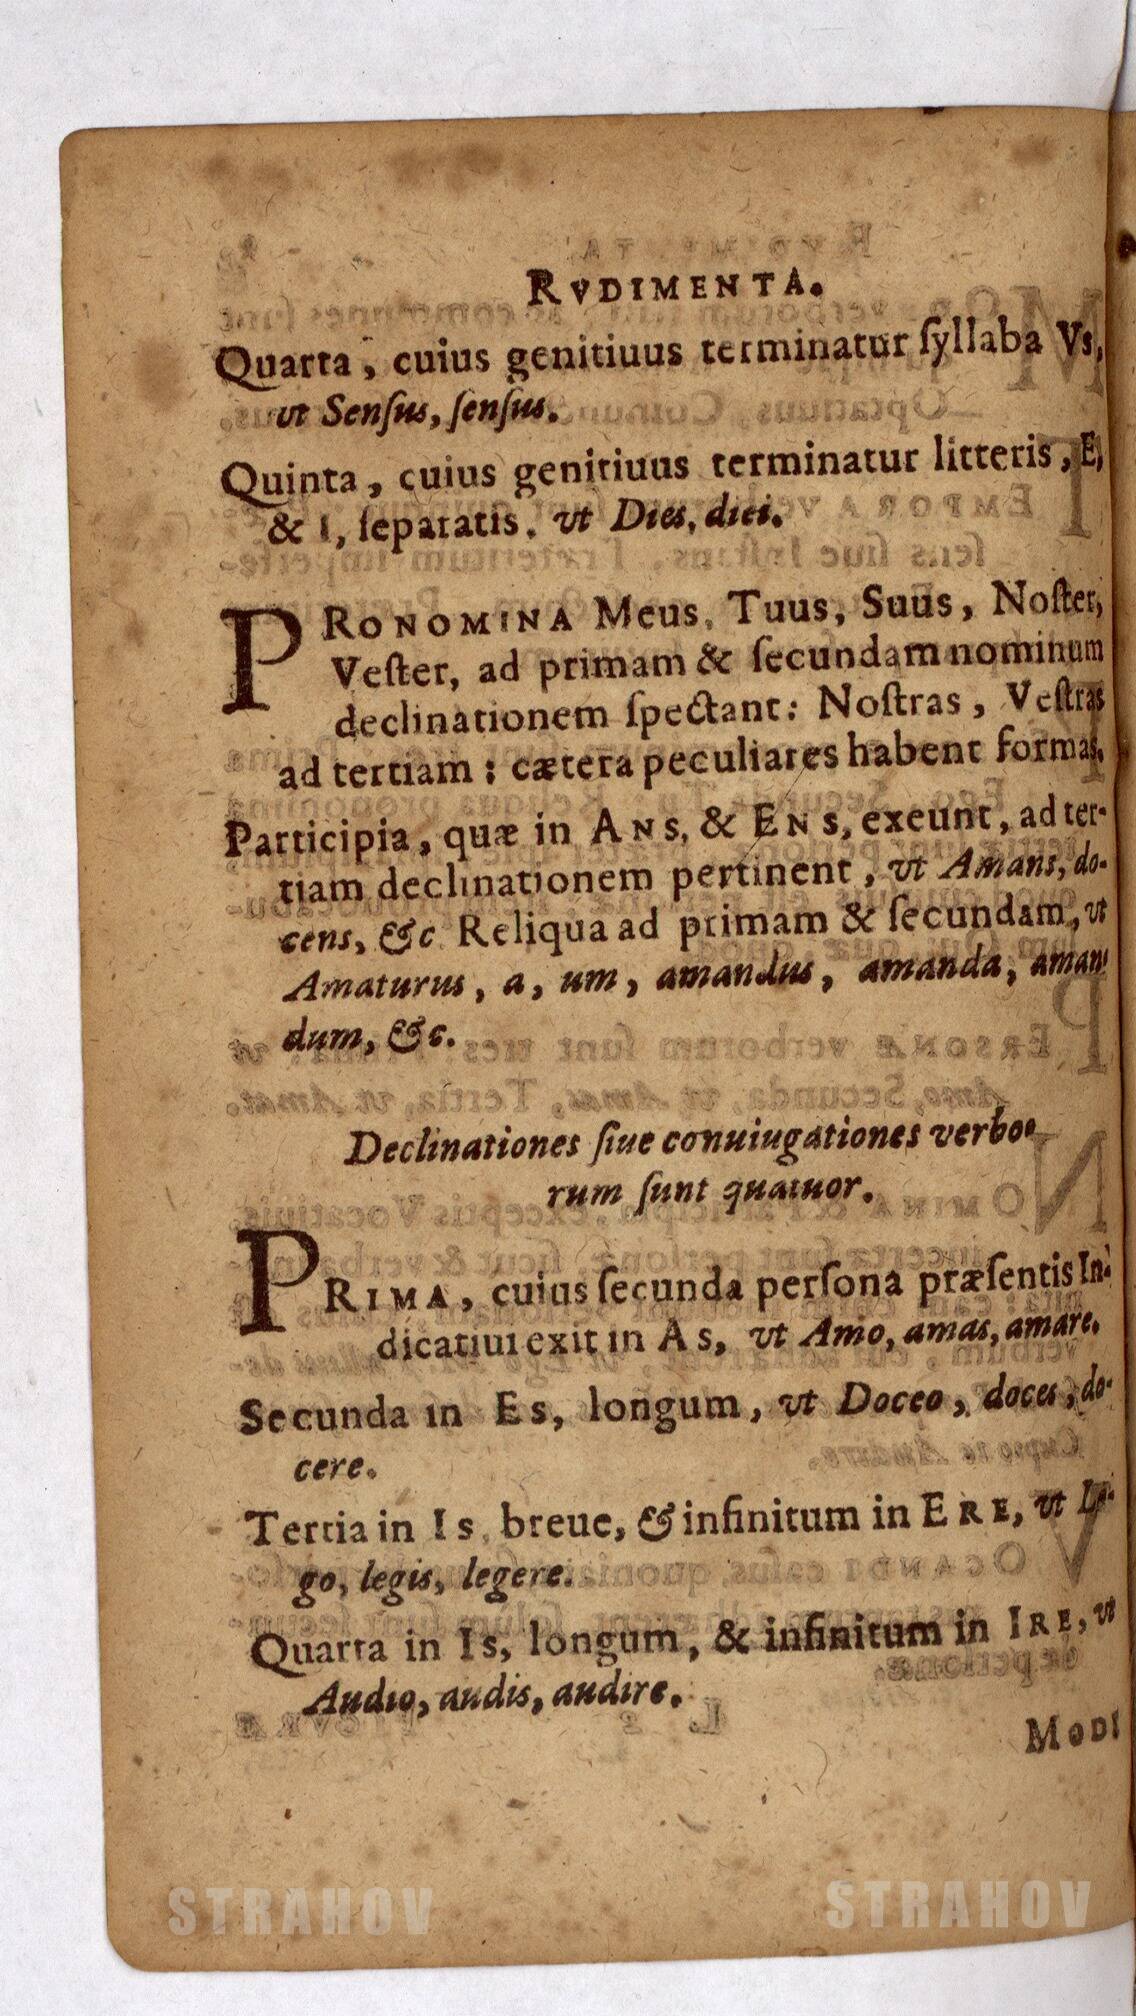 RVDIMENTA.
Quarta, cuius genitiuus terminatur ſyllaba Vs,
vt Senſus, ſenſus.
Quinta, cuius genitiuus terminatur litteris, E,
& I, ſeparatis, vt Dies, diei.
PRONOMINA Meus, Tuus, Suus, Noſter,
Veſter, ad primam & ſecundam nominum
declinationem ſpectant: Noſtras, Veſtras
ad tertiam: cætera peculiares habent formas.
Participia, quæ in ANS, & ENS, exeunt, ad ter-
tiam declinationem pertinent, vt Amans, do-
cens, &c Reliqua ad primam & ſecundam, vt
Amaturus, a, um, amandus, amanda, aman-
dum, &c.
Declinationes ſiue conuiugationes verbo-
rum ſunt quatuor.
PRIMA, cuius ſecunda perſona præſentis In-
dicatiui exit in As, vt Amo, amas, amare.
Secunda in Es, longum, vt Doceo, doces, do-
cere.
Tertia in Is, breue, & infinitum in ERE, vt Le-
go, legis, legere.
Quarta in Is, longum, & infinitum in IRE, vt
Audio, audis, audire.
MODI
STRAHOV STRAHOV